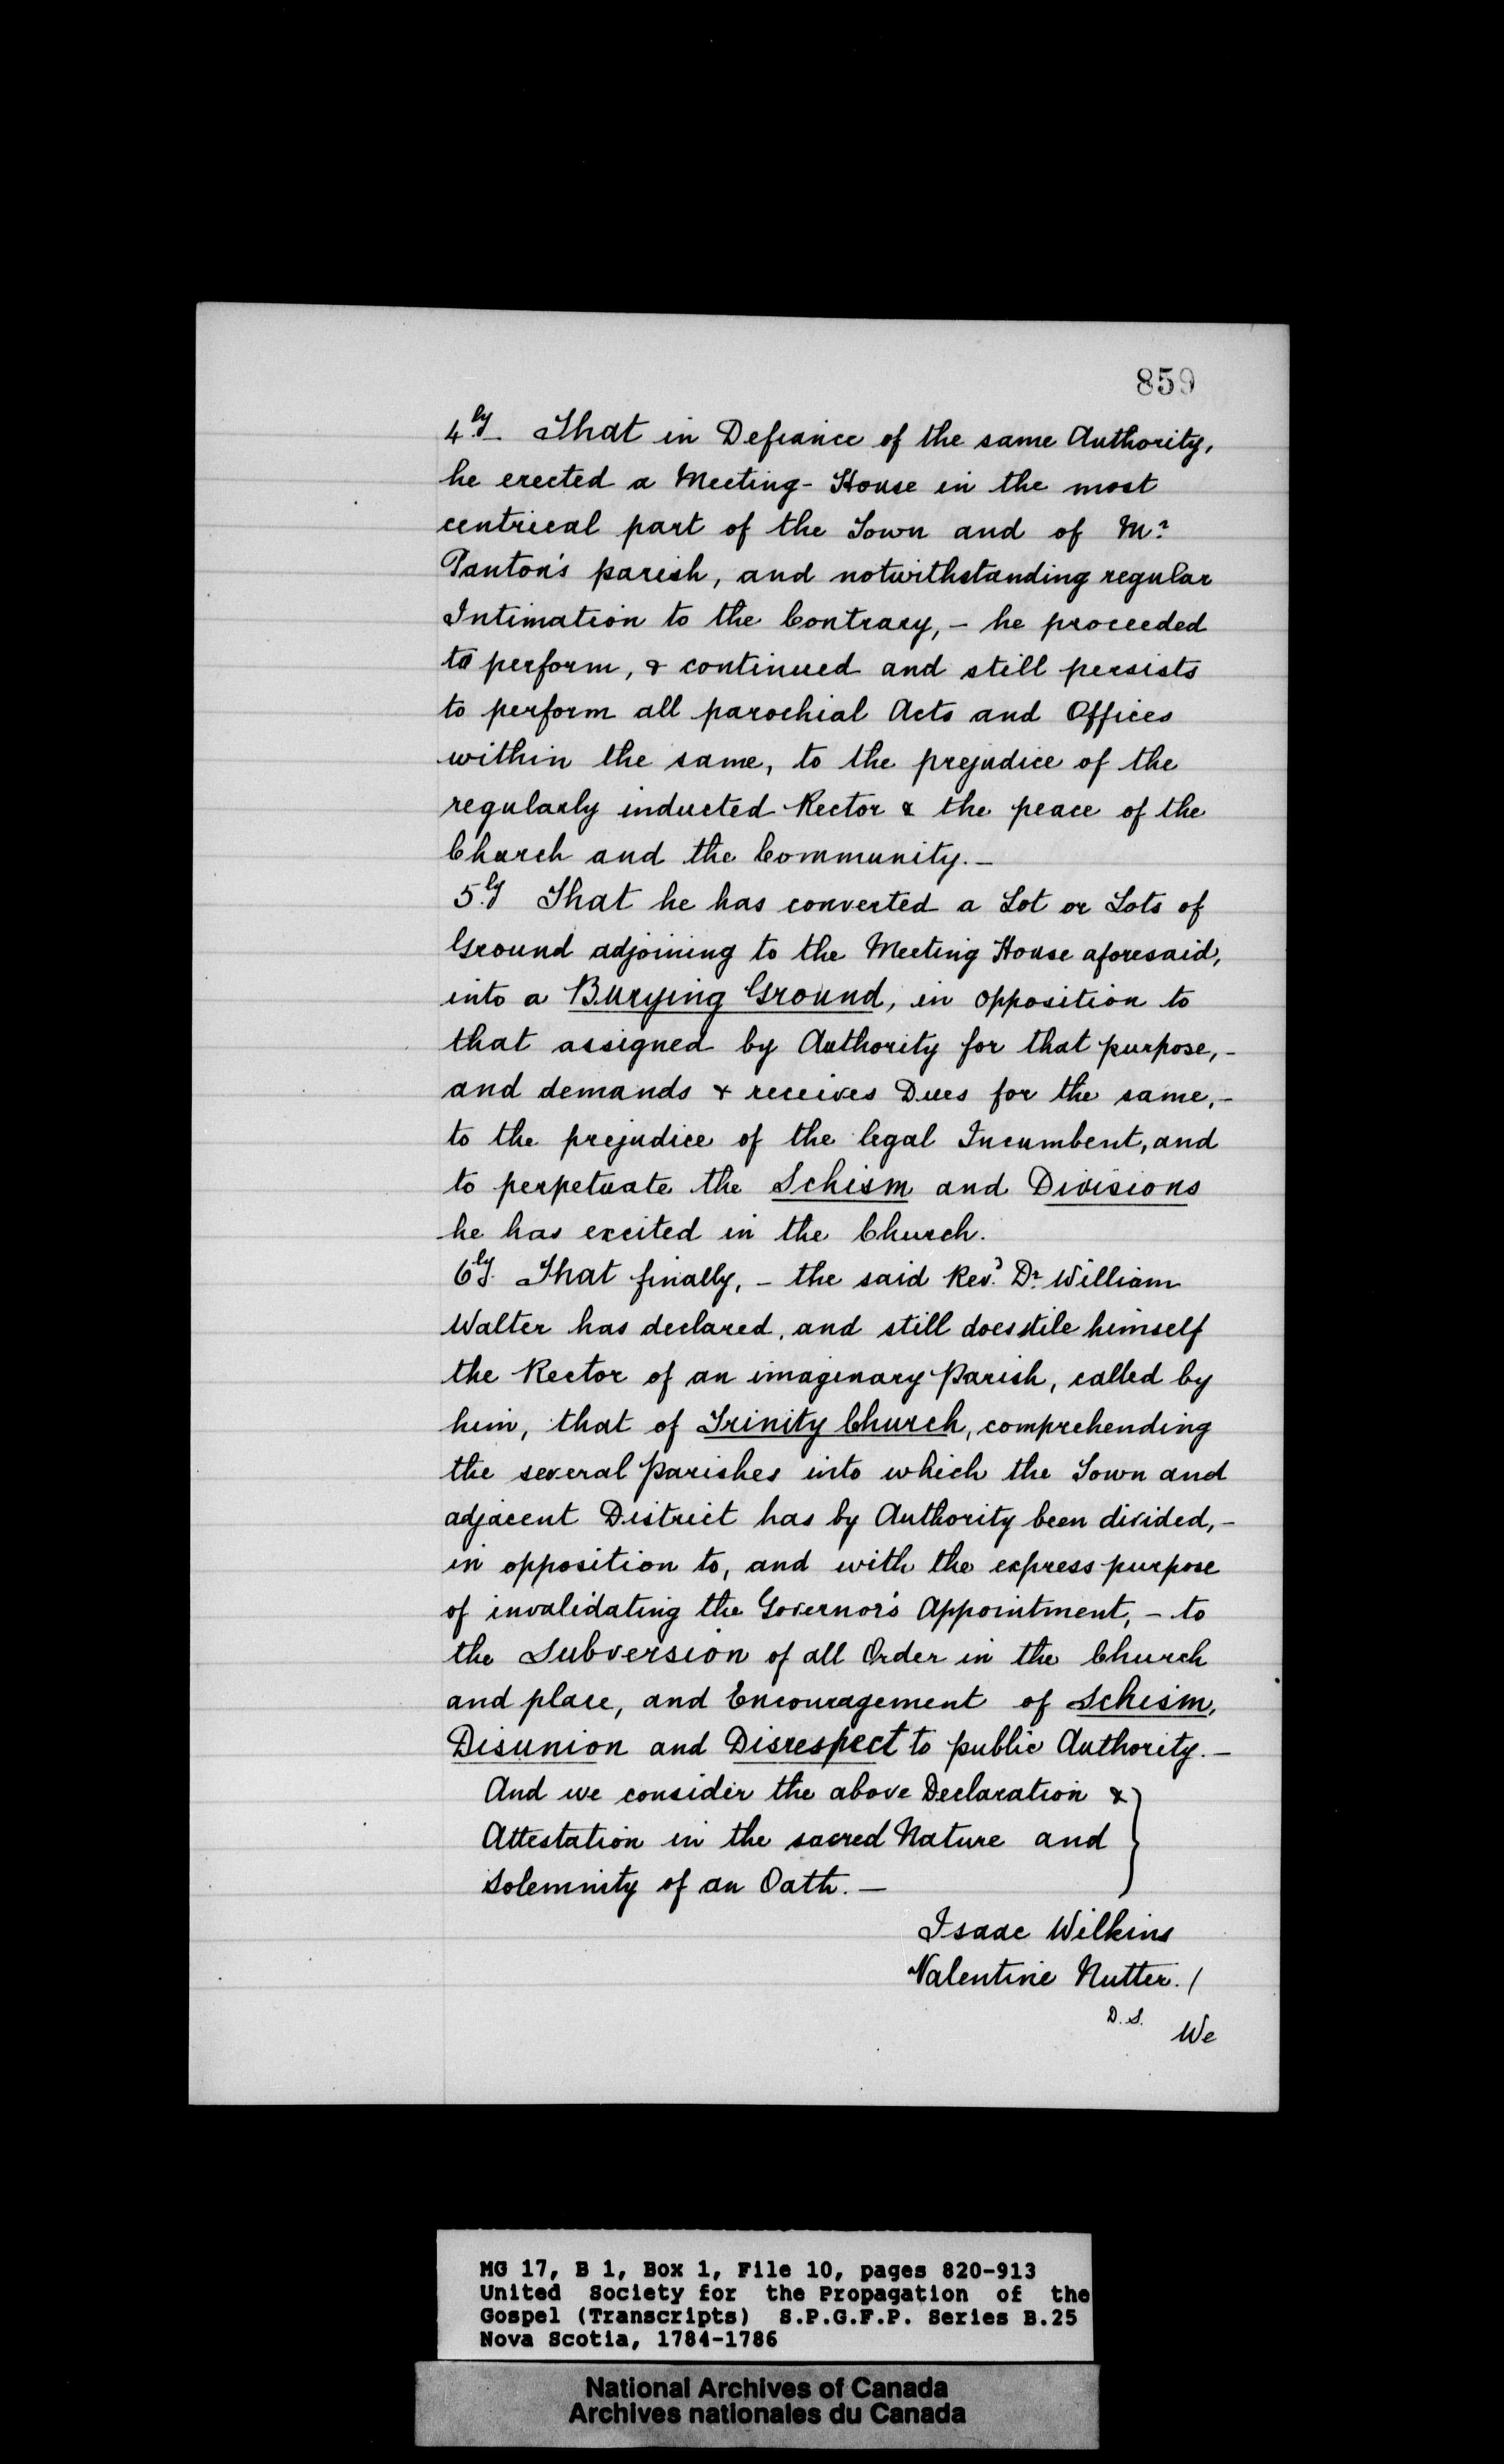 859
4ly. That in Defiance of the same Authority,
he erected a Meeting-House in the most
centrical part of the Town and of Mr
Panton's parish, and notwithstanding regular
Intimation to the Contrary, - he proceeded
to perform, & continued and still persists
to perform all parochial Acts and Offices
within the same, to the prejudice of the
regularly inducted Rector & the peace of the
Church and the Community.-
5.ly That he has converted a Lot or Lots of
Ground adjoining to the Meeting House aforesaid,
into a Burying Ground, in opposition to
that assigned by Authority for that purpose,-
and demands & receives Dues for the same,-
to the prejudice of the legal Incumbent, and
to perpetuate the Schism and Divisions
he has excited in the Church.
6ly. That finally, - the said Revd. Dr William
Walter has declared, and still does stile himself
the Rector of an imaginary Parish, called by
him, that of Trinity Church, comprehending
the several Parishes into which the Town and
adjacent District has by Authority been divided,-
in opposition to, and with the express purpose
of invalidating the Governor's Appointment, - to
the Subversion of all Order in the Church
and place, and Encouragement of Schism,
Disunion and Disrespect to public Authority.-
And we consider the above Declaration &
Attestation in the sacred Nature and
Solemnity of an Oath.-
Isaac Wilkins
Valentine Nutter. /
D. S.
We
MG 17, B 1, Box 1, File 10, pages 820-913
United Society for the Propagation of the
Gospel (Transcripts) S.P.G.F.P. Series B.25
Nova Scotia, 1784-1786
National Archives of Canada
Archives nationales du Canada